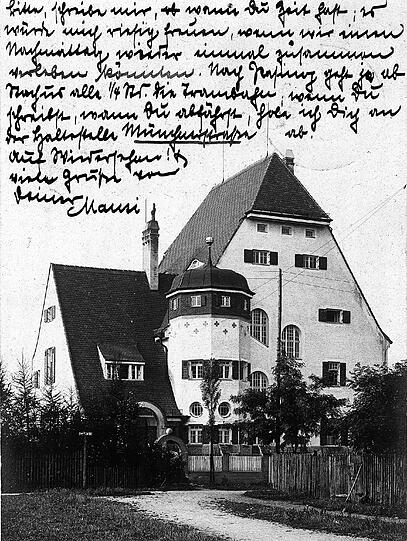 bitte, schreibe mir, wann Du Zeit hast, es
würde mich riesig freuen, wenn wir einen
Nachmittag wieder einmal zusammen
verleben könnten. Nach Pasing geht ab
Stachus alle ¼ Std. die Trambahn, wenn Du
schreibst, wann Du abfährst, hole ich Dich an
der Haltestelle Münchnerstraße ab.
Auf Wiedersehen!
viele Grüße von
Deiner
Manni